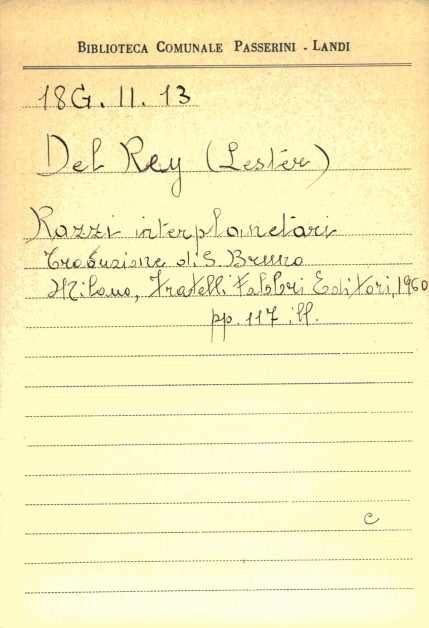 BIBLIOTECA COMUNALE PASSERINI - LANDI
18G. II. 13
Del Rey (Lester)
Razzi interplanetari
Traduzione di S. Bruno
Milano, Fratelli Fabbri Editori, 1960
pp. 117 ill.
c